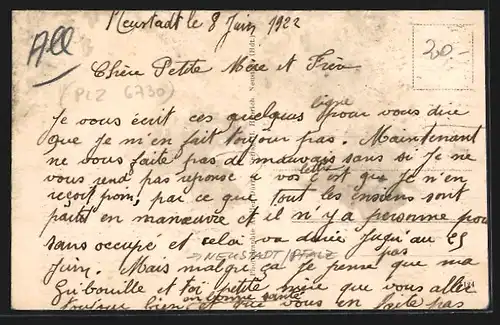 Neustadt le 8 Juin 1922
All
20-
Chère Petite Mère et Frère
(PLZ 6730)
Je vous écrit ces quelques ligne pour vous dire
que je m'en fait toujour pas. Maintenant
ne vous faite pas de mauvais sans si je ne
vous rend pas reponse a vos lettre c'est que je n'en
reçoit poin, par ce que tout les ensiens sont
partit en manœuvre et il n'y a personne pou
sans occupé et celai va durée juqu'au 25
→ NEUSTADT/PFALZ
Juin. Mais malgré ça je pense pas que ma
Gribouille et toi petite mère que vous aller
toujour bien en bonne santé et que vous en faite pas